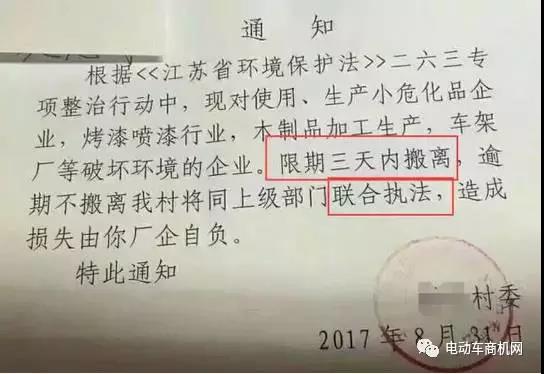 通 知
根据<<江苏省环境保护法>>二六三专
项整治行动中，现对使用、生产小危化品企
业，烤漆喷漆行业，木制品加工生产，车架
厂等破坏环境的企业。限期三天内搬离，逾
期不搬离我村将同上级部门联合执法，造成
损失由你厂企自负。
特此通知
村委
2017 年 8 月 31 日
电动车商机网